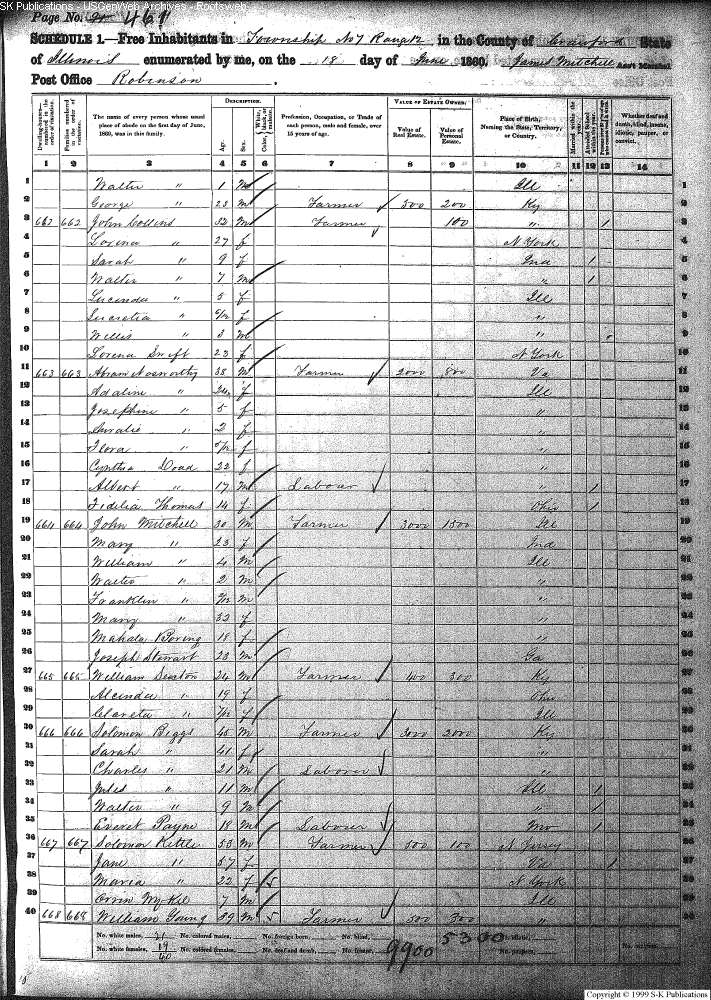 SK Publications - USGenWeb Archives - Rootsweb
Page No. 461
SCHEDULE 1.—Free Inhabitants in Township No 7 Range 12 in the County of Crawford State
of Illinois enumerated by me, on the 18 day of June 1860. James Mitchell Ass't Marshal.
Post Office Robinson.
Dwelling-houses— numbered in the order of visitation.
Families numbered in the order of visitation.
The name of every person whose usual place of abode on the first day of June, 1860, was in this family.
DESCRIPTION.
Age.
Sex.
Color, White, black, or mulatto.
Profession, Occupation, or Trade of each person, male and female, over 15 years of age.
VALUE OF ESTATE OWNED.
Value of Real Estate.
Value of Personal Estate.
Place of Birth, Naming the State, Territory, or Country.
Married within the year.
Attended School within the year.
Whether deaf and dumb, blind, insane, idiotic, pauper, or convict.
1 2 3 4 5 6 7 8 9 10 11 12 13 14
1 Walter " 1 m Ill 1
2 George " 23 m Farmer 500 200 Ky 2
3 662 John Collins 32 m Farmer 100 " 1 3
4 Lorena " 27 f N York 4
5 Sarah " 9 f Ind 1 5
6 Walter " 7 m " 1 6
7 Lucinda " 5 f Ill 7
8 Lucretia " f " 8
9 Willis " 3 m " 9
10 Lorena Swift 23 f N York 10
11 663 663 Abram Nosworthy 38 m Farmer 2000 800 Va 11
12 Adaline " 24 f Ill 12
13 Josephine " 5 f " 13
14 " 2 f " 14
15 Flora " f " 15
16 Cynthia 22 f " 16
17 Albert " 17 m Labour " 1 17
18 Fidelia Thomas 14 f Ohio 1 18
19 664 664 John Mitchell 30 m Farmer 3000 1500 Ill 19
20 Mary " 23 f Ind 20
21 William " 4 m Ill 21
22 Walter " 2 m " 22
23 Franklin " m " 23
24 Mary " 33 f " 24
25 Mahala Boring 18 f " 25
26 Joseph Stewart 23 m Ga 26
27 665 665 William Seaton 24 m Farmer 400 300 Ky 27
28 Alcinda " 19 f Ohio 28
29 Clareta " f Ill 29
30 666 666 Solomon Biggs 45 m Farmer 3000 2000 Ky 30
31 Sarah " 41 f " 31
32 Charles " 21 m Laborer " 32
33 " 11 m Ill 1 33
34 Walter " 9 m " 1 34
35 Everet Payne 18 m Labour Mo 1 35
36 667 667 Solomon Kittle 53 m Farmer 500 100 N Jersey 36
37 Jane " 57 f Va 1 37
38 Maria " 22 f N York 38
39 Orvin 7 m Ill 39
40 668 668 William Young 59 m Farmer 500 300 " 40
No. white males, 21 No. colored males, No. foreign born, No. blind,
No. white females, 19 No. colored females, No. deaf and dumb, No. insane,
40
9900 5300
No. idiotic,
No. paupers,
Copyright © 1999 S-K Publications